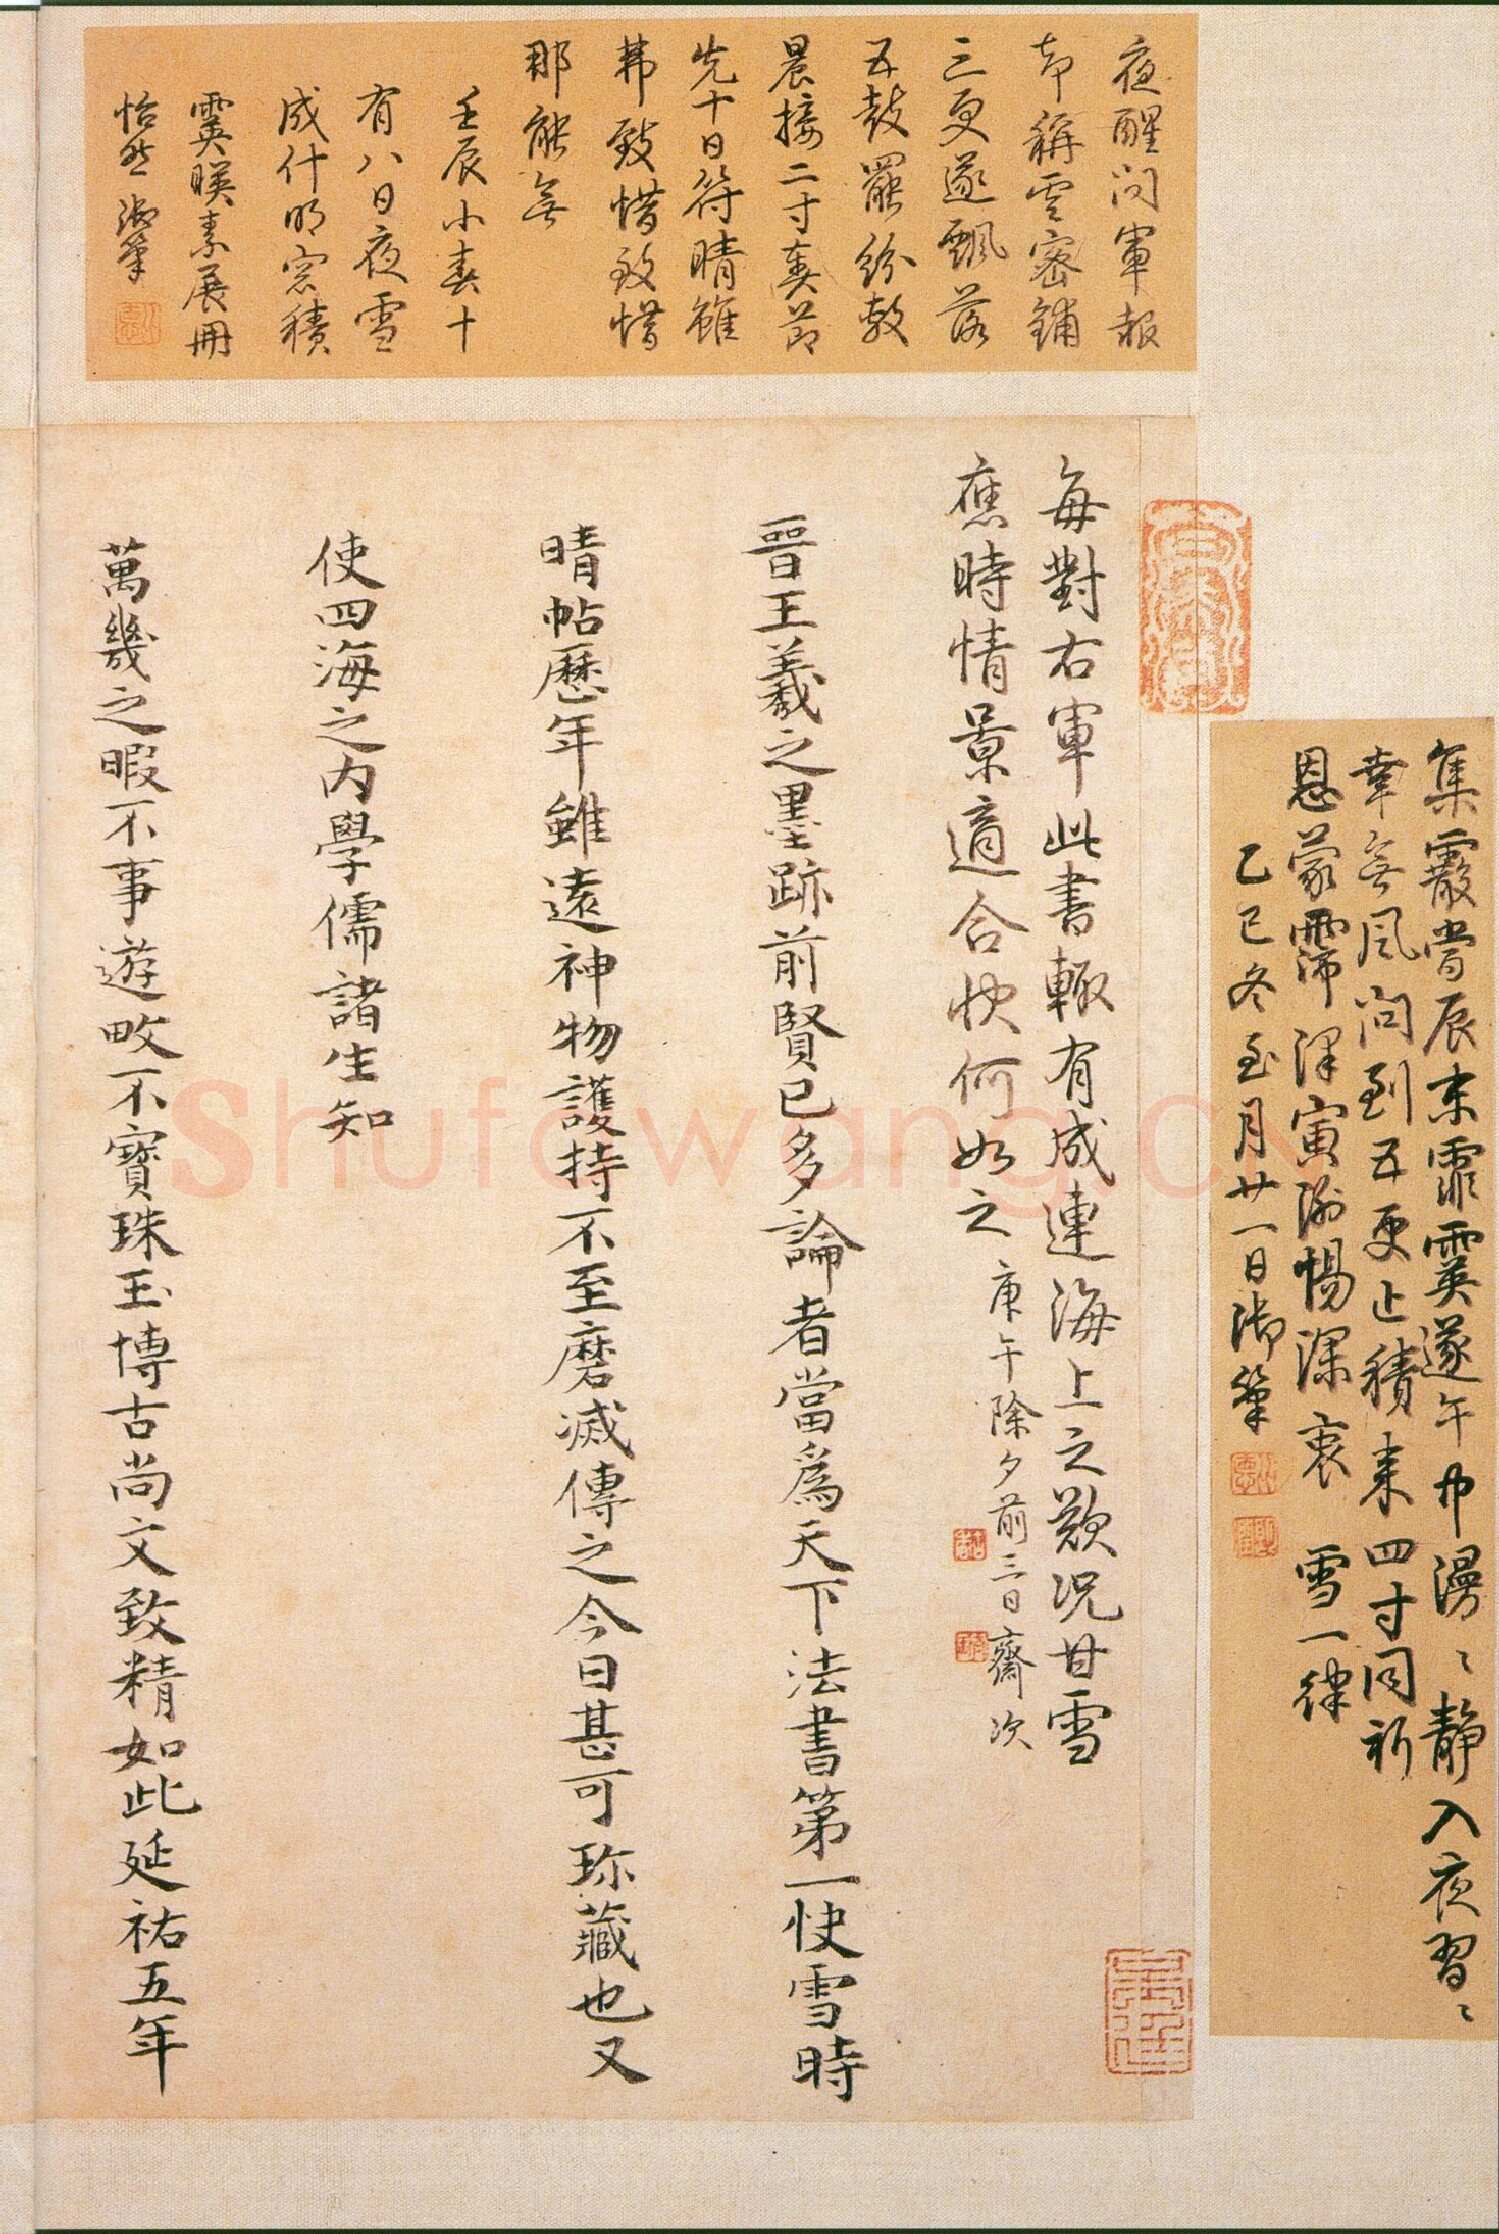 夜醒問軍報
却稱雲密鋪
三更遂飄落
五鼓罷紛敷
晨接二寸奏節
先十日符晴雖
弗致惜致惜
那能無
壬辰小春十
有八日夜雪
成什明窓積
霙暎素展冊
怡然御筆
集霰當辰末霏霙遂午中漫〻静入夜習〻
幸無風問到五更止積来四寸同祈
恩蒙霈澤寅謝惕深衷 雪一律
乙巳冬至月廿一日御筆
每對右軍此書輒有成連海上之歎況甘雪
應時情景適合快何如之庚午除夕前三日齋次
晉王羲之墨跡前賢已多論者當為天下法書第一快雪時
晴帖歷年雖遠神物護持不至磨滅傳之今日甚可珎藏也又
使四海之内學儒諸生知
萬幾之暇不事遊畋不寶珠玉博古尚文致精如此延祐五年
Shufawang.cn